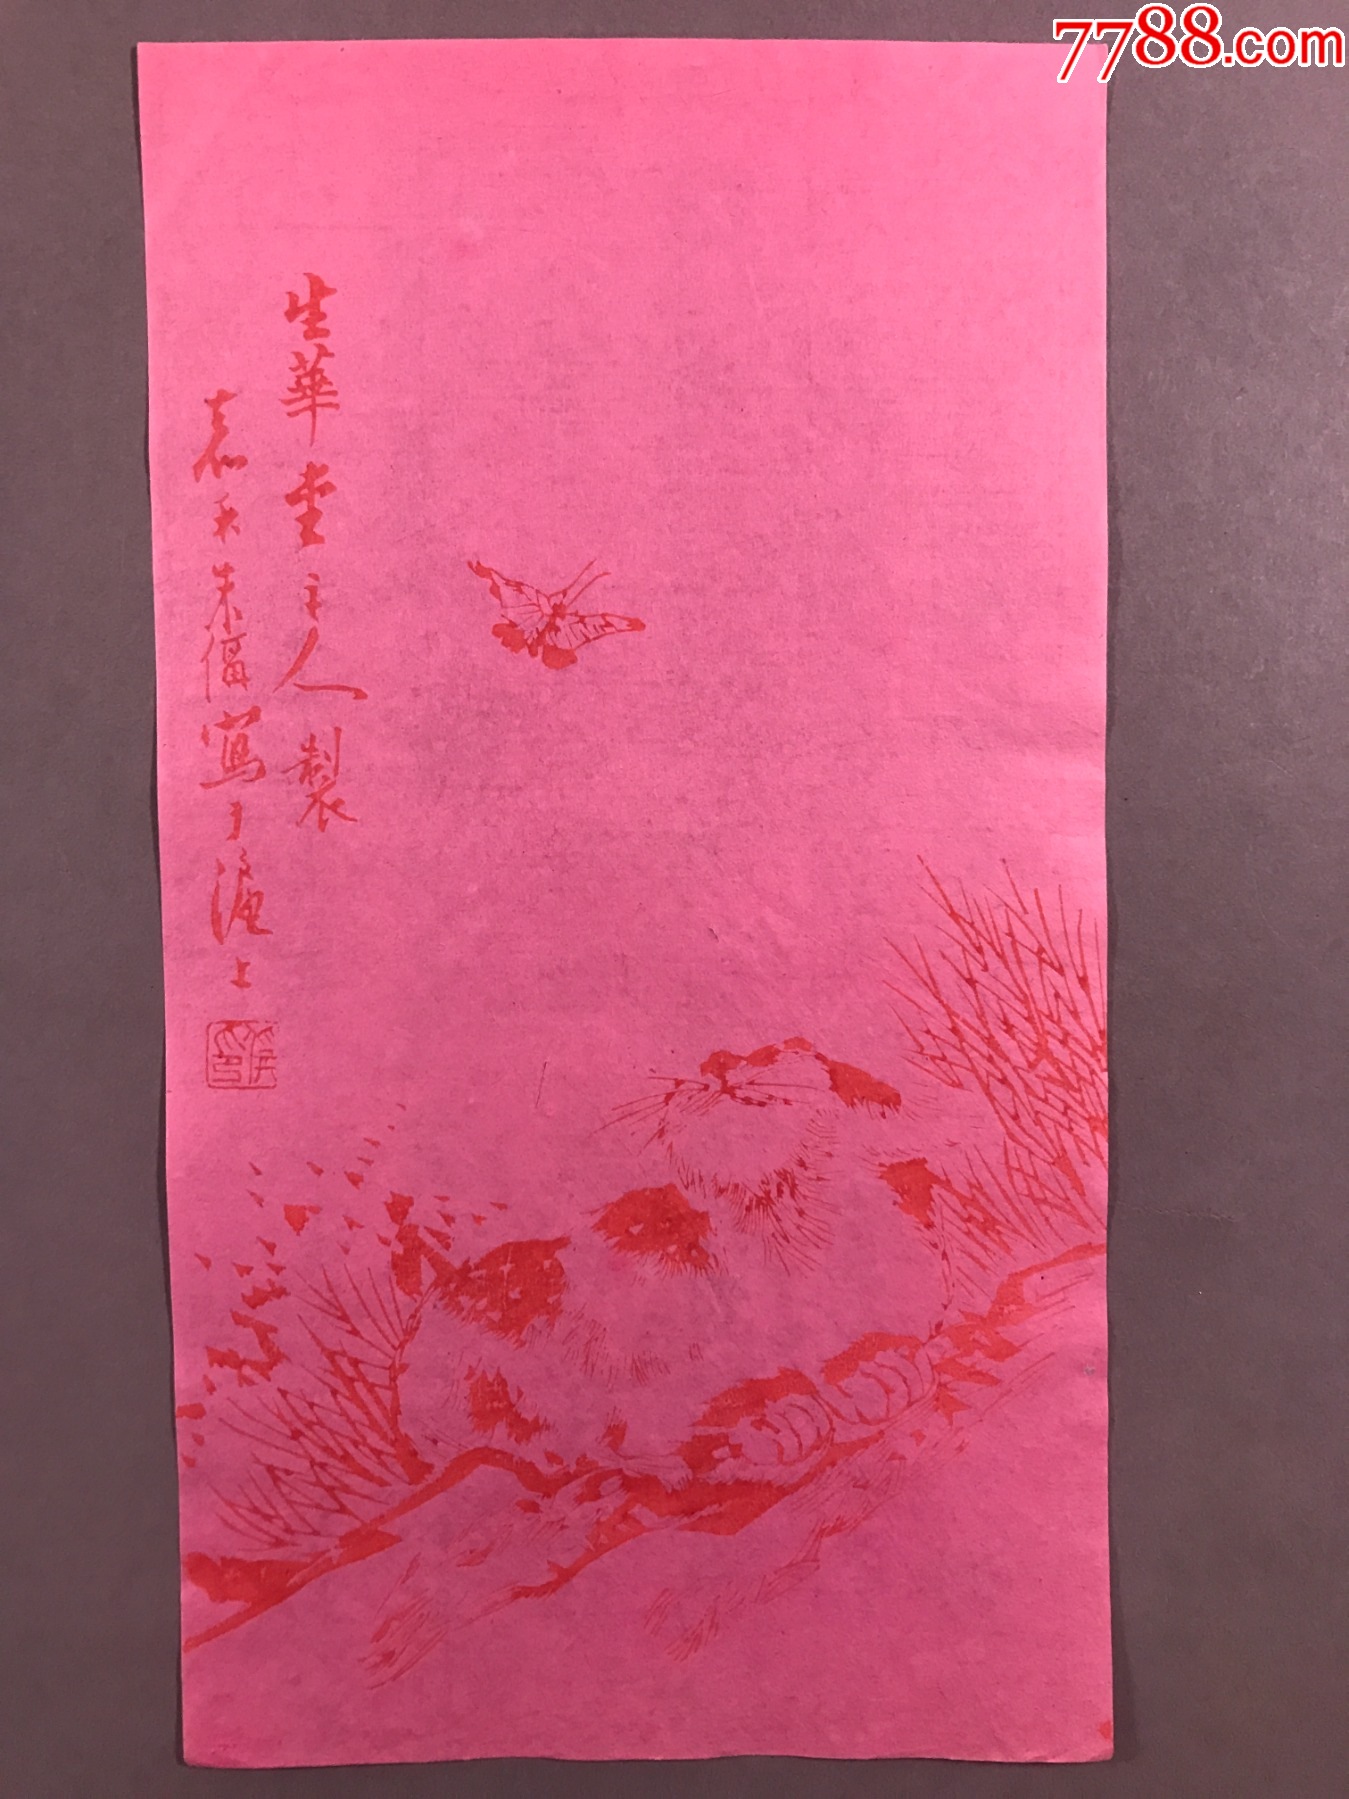 7788.com
生華堂主人製
嘉禾朱偁寫于滬上